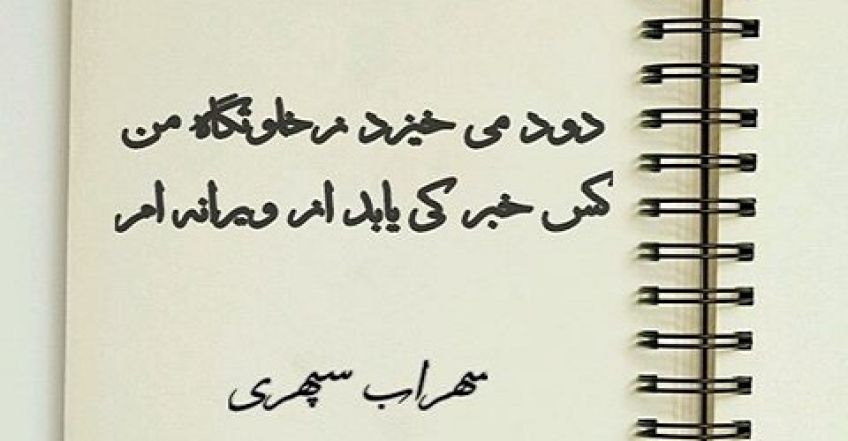 دود می خیزد ز خلوتگاه من
کس خبر کی یابد از ویرانه ام
سهراب سپهری